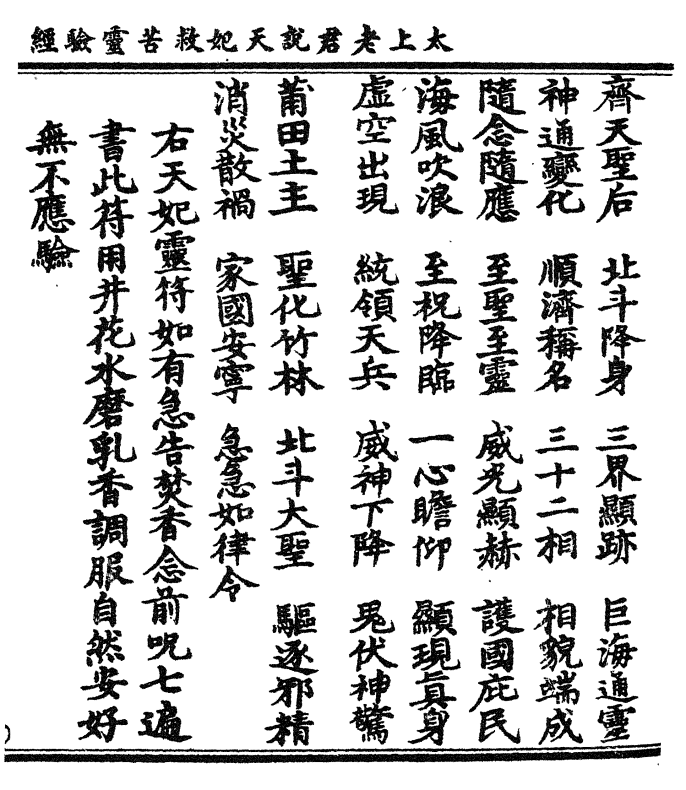 太上老君說天妃救苦靈驗經
齊天聖后 北斗降身 三界顯跡 巨海通靈
神通變化 順濟稱名 三十二相 相貌端成
隨念隨應 至聖至靈 威光顯赫 護國庇民
海風吹浪 至祝降臨 一心瞻仰 顯現眞身
虛空出現 統領天兵 威神下降 鬼伏神驚
莆田土主 聖化竹林 北斗大聖 驅逐邪精
消災散禍 家國安寧 急急如律令
右天妃靈符如有急告焚香念前呪七遍
書此符用井花水磨乳香調服自然安好
無不應驗